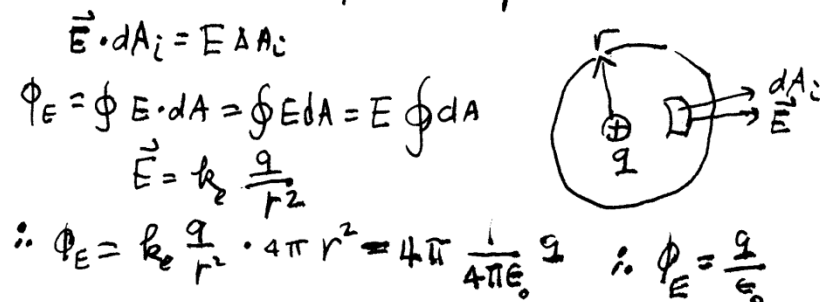 \vec{E} \cdot dA_i = E \Delta A_i
\phi_E = \oint E \cdot dA = \oint E dA = E \oint dA
\vec{E} = k_e \frac{q}{r^2}
\therefore \phi_E = k_e \frac{q}{r^2} \cdot 4\pi r^2 = 4\pi \frac{1}{4\pi\epsilon_0} q \quad \therefore \phi_E = \frac{q}{\epsilon_0}
r
dA_i
\vec{E}
+
q